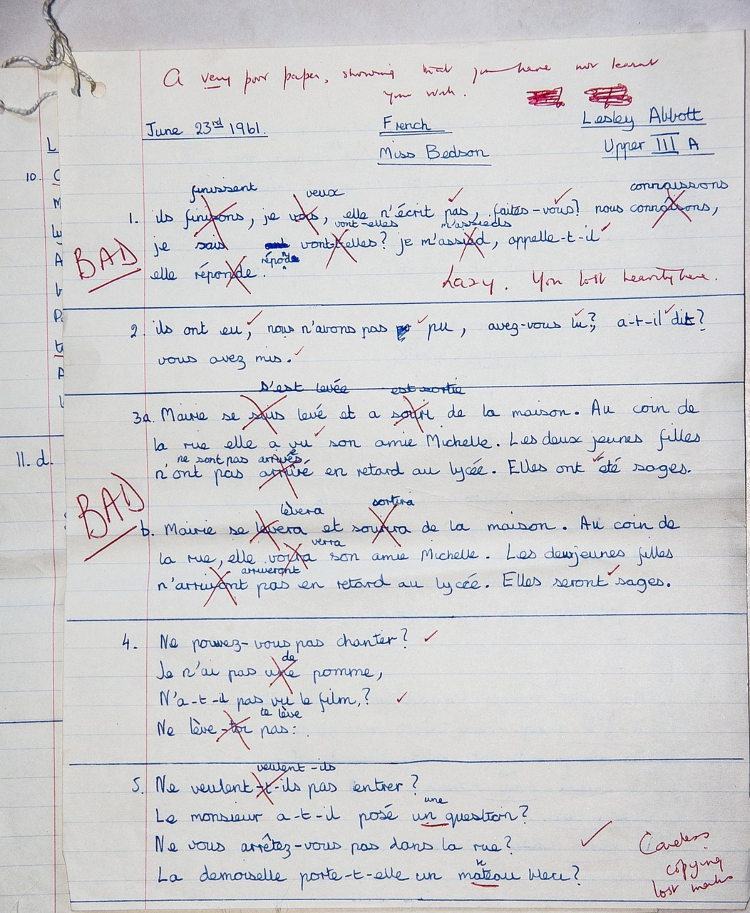 A very poor paper, showing that you have not learnt
your work.
June 23rd 1961. French Lesley Abbott
Miss Bedson Upper III A
finissent veux connaissons
1. ils finissons, je vois, elle n'écrit pas, faites-vous? nous connaisons,
vont-elles m'assieds
je sais vont-elles? je m'assied, appelle-t-il
BAD
répond
elle réponde. Lazy. You lost heavily here.
2. ils ont eu, nous n'avons pas pu, avez-vous lu? a-t-il dit?
vous avez mis.
s'est levée est sortie
3a. Mairie se suis levé et a sorti de la maison. Au coin de
la rue elle a vu son amie Michelle. Les deux jeunes filles
ne sont pas arrivés
n'ont pas arrivé en retard au lycée. Elles ont été sages.
BAD
lèvera sortira
b. Mairie se levera et sortira de la maison. Au coin de
verra
la rue, elle voira son amie Michelle. Les deux jeunes filles
arriveront
n'arriveront pas en retard au lycée. Elles seront sages.
4. Ne pouvez-vous pas chanter?
de
Je n'ai pas une pomme,
N'a-t-il pas vu le film,?
te lève
Ne lève-toi pas.
veulent-ils
5. Ne veulent-t-ils pas entrer?
une
Le monsieur a-t-il posé un question?
Ne vous arrêtez-vous pas dans la rue?
n
La demoiselle porte-t-elle un mateau bleu?
Careless
copying
lost marks
10.
L
C
M
A
P
A
11. d.